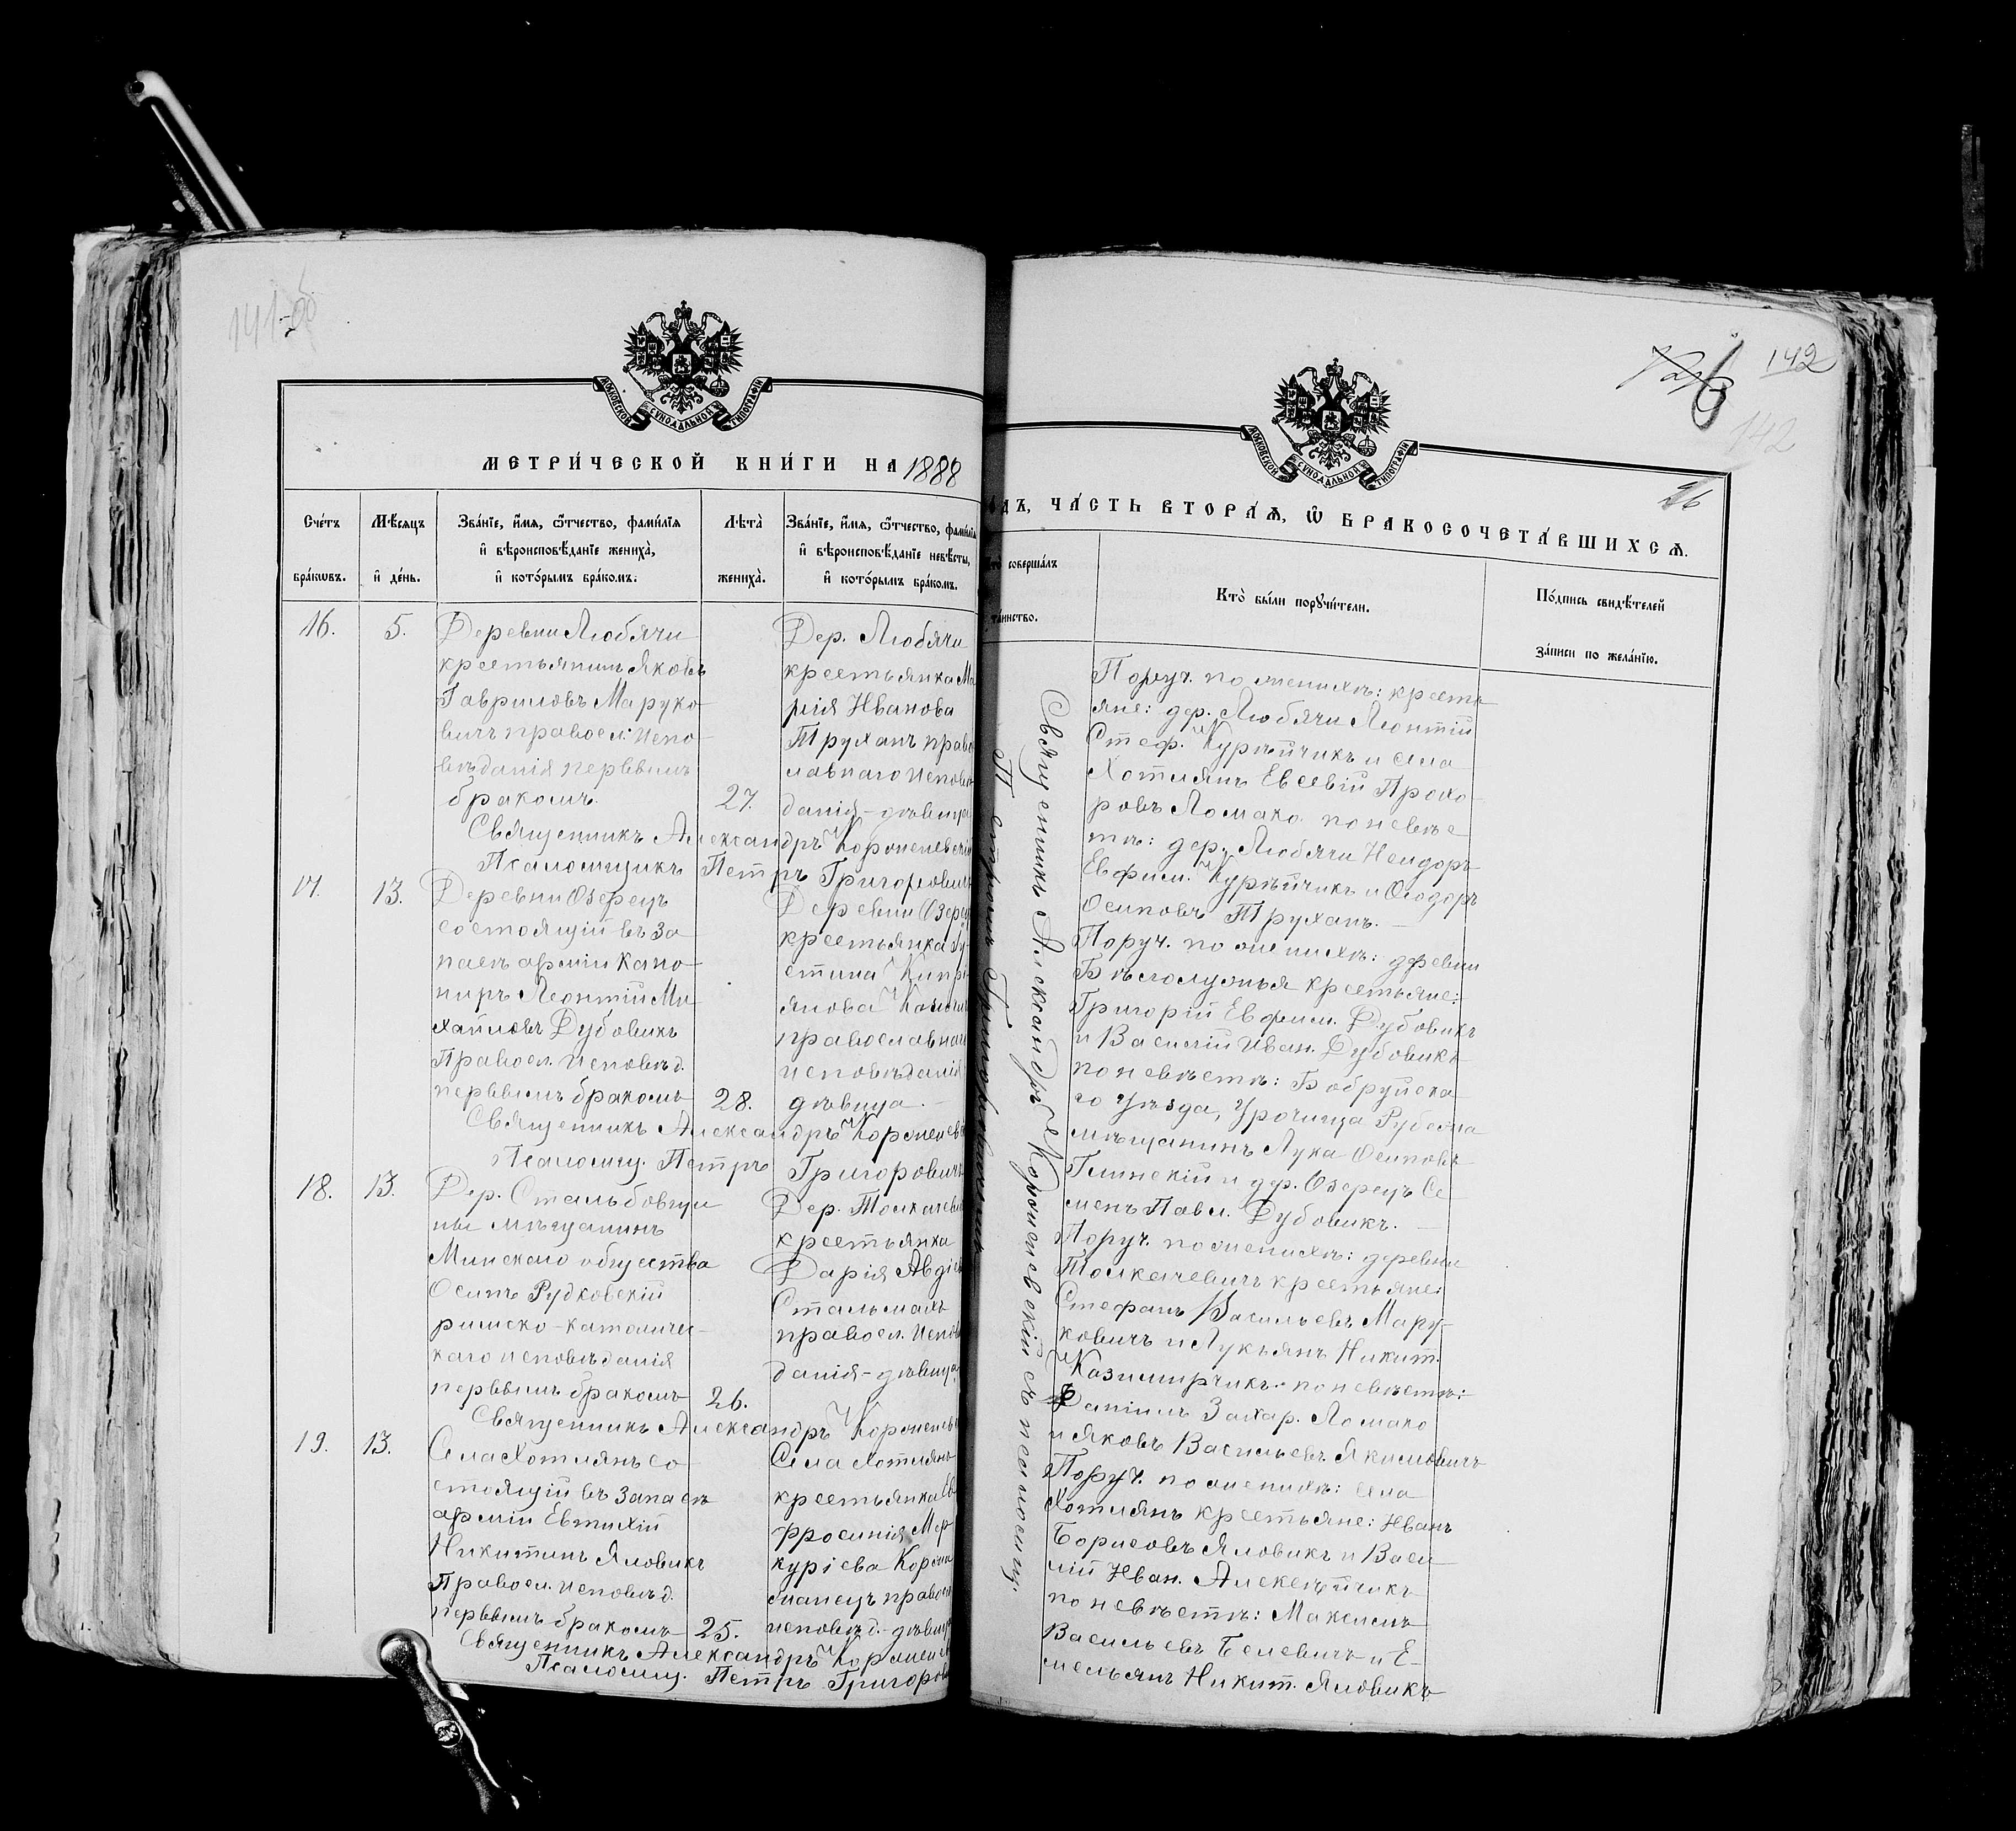 141-об
МОСКОВСКОЙ СѴНОДАЛЬНОЙ ТИПОГРАФІИ
МЕТРИ́ЧЕСКОЙ КНИ́ГИ НА 1888
Сче́тъ бра́ковъ.
Мѣ́сяцъ и҆ де́нь.
Зва́нїе, и҆́мя, ѻ҆́тчество, фами́лїя
и҆ вѣроисповѣ́данїе жениха̀,
и҆ кото́рымъ бра́комъ.
Лѣ́та жениха̀.
Зва́нїе, и҆́мя, ѻ҆́тчество, фами́лїя
и҆ вѣроисповѣ́данїе невѣ́сты,
и҆ кото́рымъ бра́комъ.
16.
5.
Деревни Любячи
крестьянинъ Яковъ
Гавриловъ Маруко-
вичъ правосл. испо-
вѣданія первымъ
бракомъ.
27.
Дер. Любячи
крестьянка Ма
рія Иванова
Труханъ право
славнаго исповѣ
данія - дѣвица
Священникъ Александръ Короленевскій
Псаломщикъ Петръ Григоровичъ
17.
13.
Деревни Озерецъ
состоящій въ за
пасѣ арміи кано-
ниръ Леонтій Ми
хайловъ Дубовикъ
Правосл. исповѣд.
первымъ бракомъ
28.
Деревни Озерец
крестьянка Іу-
стина Кипрі
янова
православнаг
исповѣданія
дѣвица.
Священникъ Александръ
Псаломщ. Петръ Григоровичъ
18.
13.
Дер. Стальбовщи
ны мѣщанинъ
Минскаго общества
Осипъ Рудковскій
римско-католичес-
каго исповѣданія
первымъ бракомъ
26.
Дер. Толкачеви
крестьянка
Дарія Авдіе
Стальмахъ
правосл. испов
данія - дѣвица
Священникъ Александръ
19.
13.
Села Хотлянъ со-
стоящій въ запасѣ
арміи Евтихій
Никитинъ Яловикъ
Правосл. исповѣд.
первымъ бракомъ
25.
Села Хотлянъ
крестьянка Ев
фросинія Мер-
куріева
правосл
исповѣд. - дѣвица
Священникъ Александръ
Псаломщ. Петръ Григоров
142
142
26
МОСКОВСКОЙ СѴНОДАЛЬНОЙ ТИПОГРАФІИ
ОДЪ, ЧА́СТЬ ВТОРА́Я, Ѽ БРАКОСОЧЕТА́ВШИХСЯ.
то̀ соверша́лъ
та́инство.
Кто̀ бы́ли порꙋчи́тели.
По́дпись свидѣ́телей
за́писи по жела́нїю.
Священникъ Александръ Короленевскій съ псаломщ.
Петромъ Григоровичемъ
Поруч. по женихѣ: кресть
яне: дер. Любячи Леонтій
Стеф. Курѣйчикъ и села
Хотлянъ Евсевій Прохо-
ровъ Ломако. по невѣс
тѣ: дер. Любячи Исидоръ
Ефим. Курѣйчикъ и Ѳеодоръ
Осиповъ Труханъ.
Поруч. по женихѣ: деревни
Бѣлолужья крестьяне:
Григорій Ефим. Дубовикъ
и Василій Иван. Дубовикъ
по невѣстѣ: Бобруйска
го уѣзда, Урочища Рубежа
мѣщанинъ Лука Осиповъ
Глинскій и дер. Озерецъ Се-
менъ Павл. Дубовикъ.
Поруч. по женихѣ: деревни
Толкачевичъ крестьяне:
Стефанъ Васильевъ Мару-
ковичъ и Лукьянъ Никит.
Казимирчикъ. по невѣстѣ:
Даніилъ Захар. Ломако
и Яковъ Васильевъ Якимовичъ
Поруч. по женихѣ: села
Хотлянъ крестьяне: Иванъ
Борисовъ Яловикъ и Васи-
лій Иван. Алексѣйчикъ
по невѣстѣ: Максимъ
Васильевъ Белевичъ и Е-
мельянъ Никит. Яловикъ